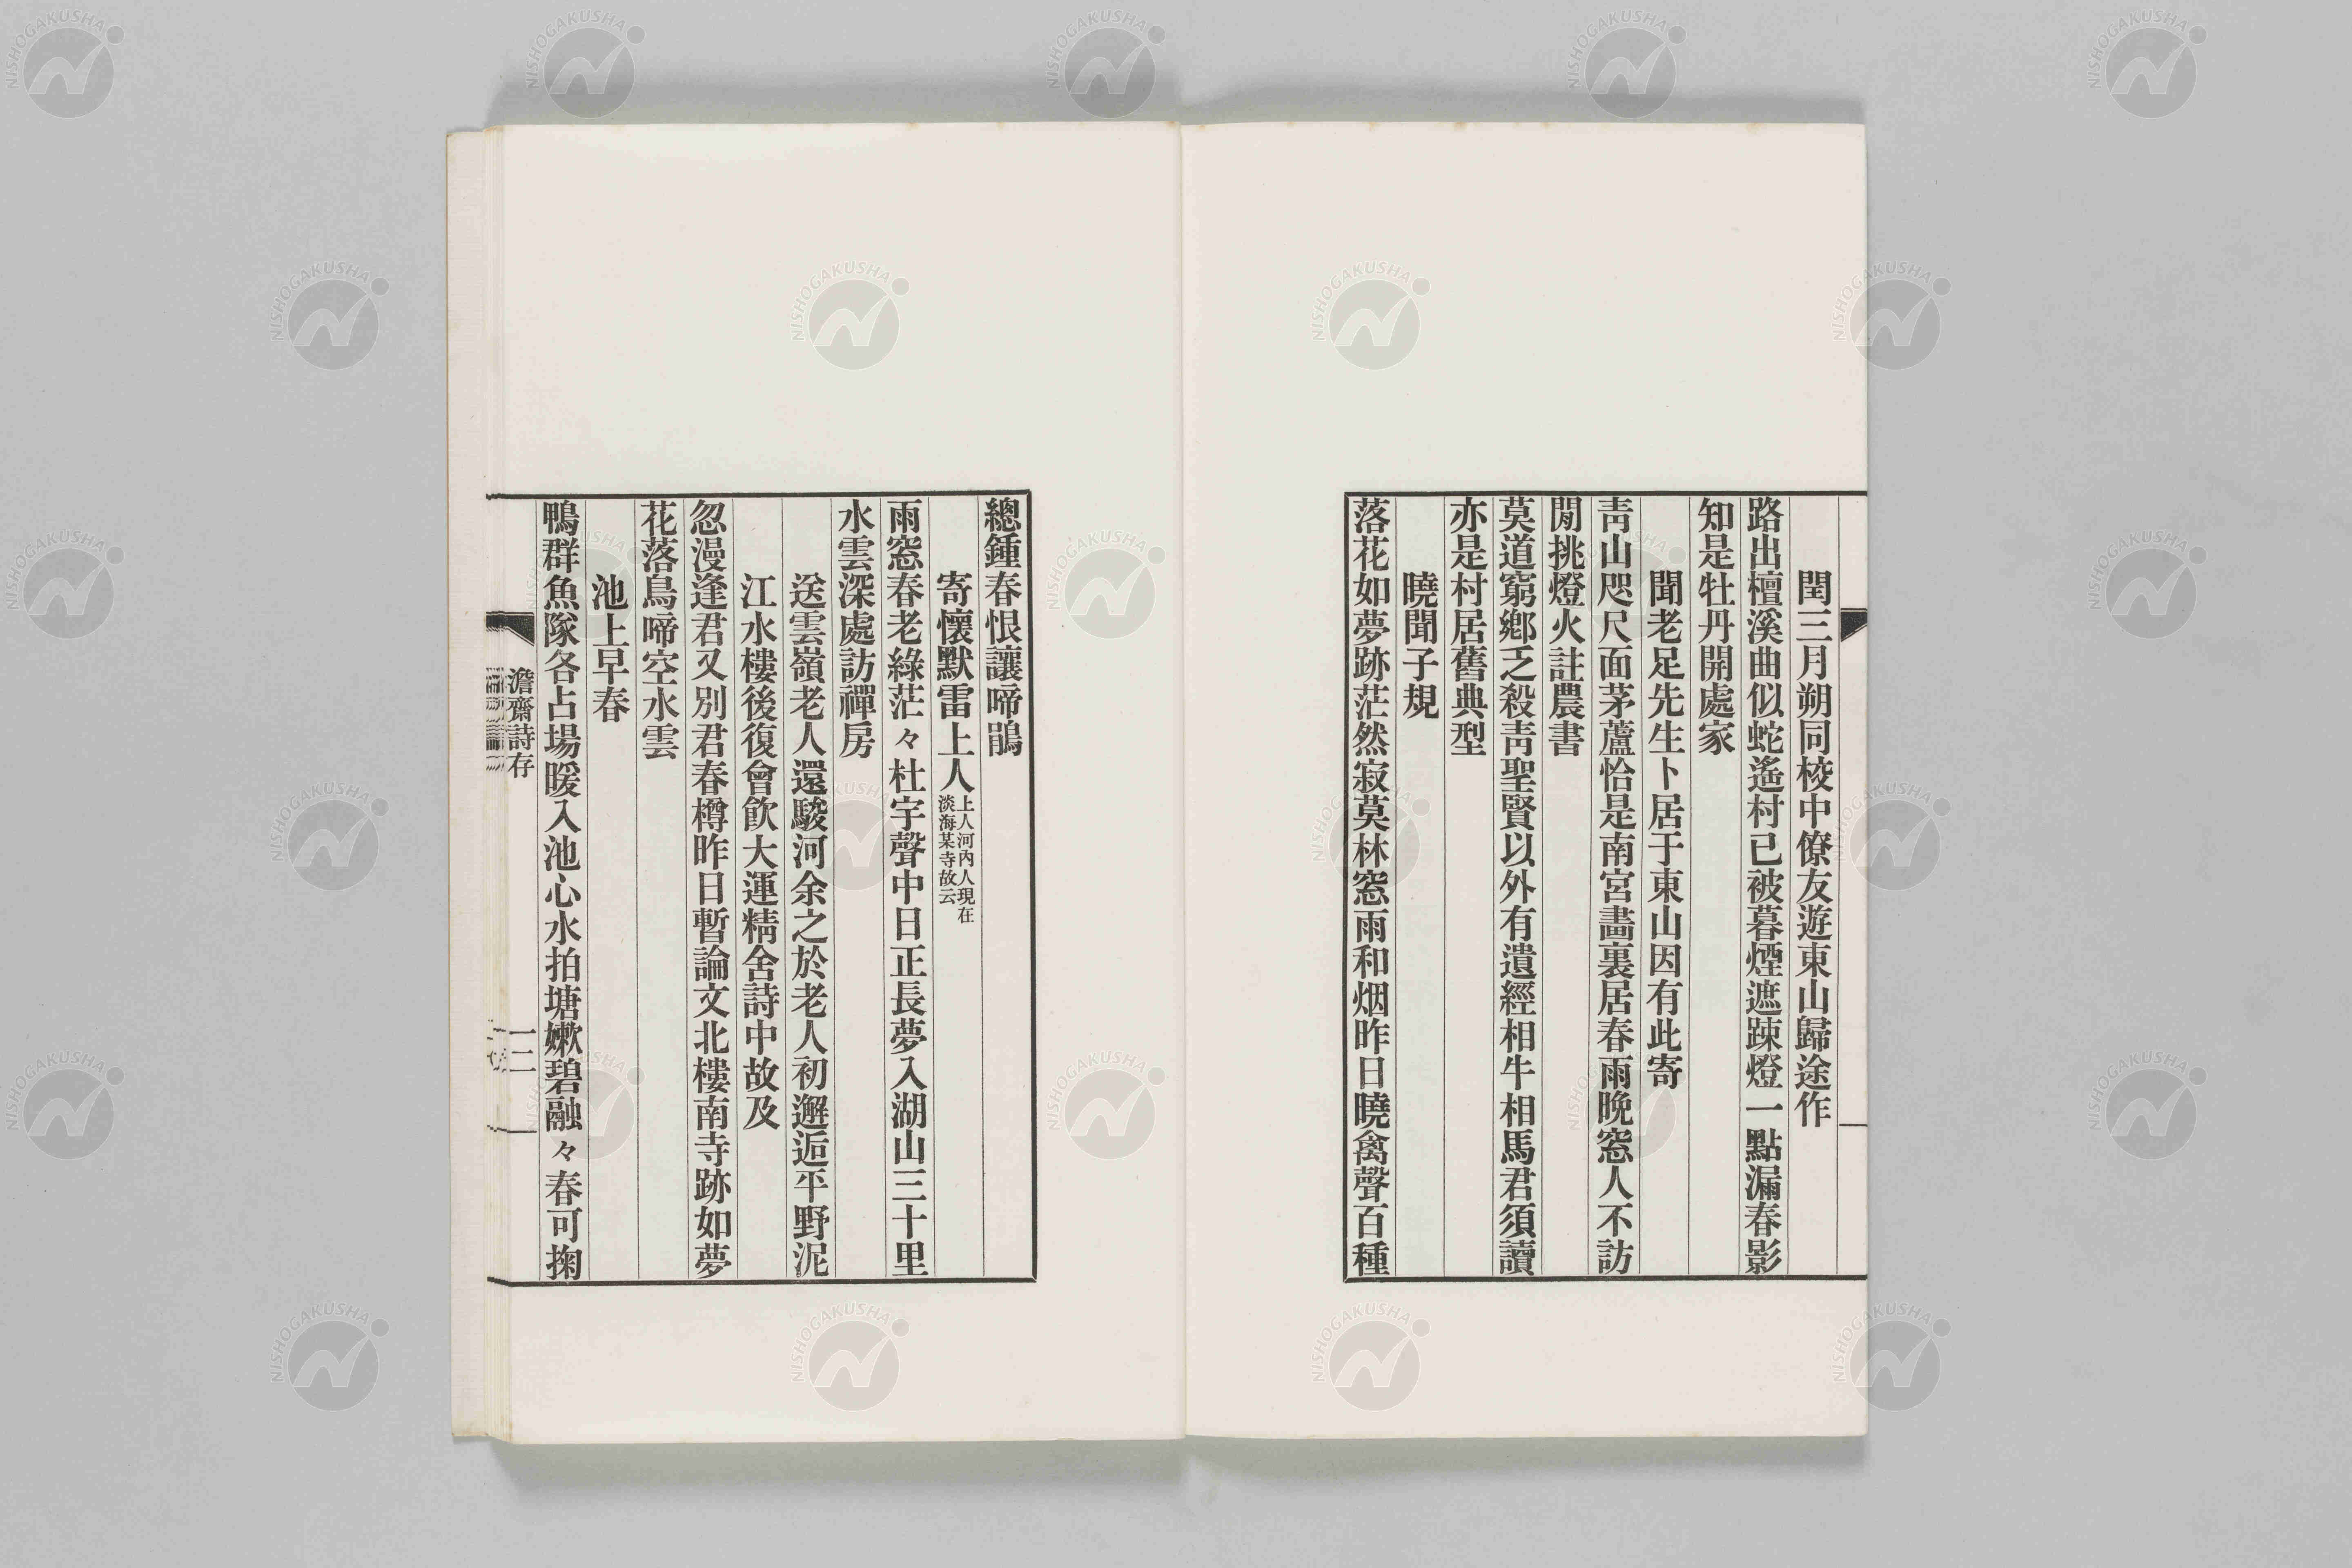 閏三月朔同校中僚友遊東山歸途作
路出檀溪曲似蛇遙村已被暮煙遮踈燈一點漏春影
知是牡丹開處家
聞老足先生卜居于東山因有此寄
靑山咫尺面茅蘆恰是南宮畵裏居春雨晚窓人不訪
閒挑燈火註農書
莫道窮鄕乏殺靑聖賢以外有遺經相牛相馬君須讀
亦是村居舊典型
曉聞子規
落花如夢跡茫然寂莫林窓雨和烟昨日曉禽聲百種
總鍾春恨讓啼鵑
寄懷默雷上人上人河內人現在
淡海某寺故云
雨窓春老綠茫々杜宇聲中日正長夢入湖山三十里
水雲深處訪禪房
送雲嶺老人還駿河余之於老人初邂逅平野泥
江水樓後復會飮大運精舍詩中故及
忽漫逢君又別君春樽昨日暫論文北樓南寺跡如夢
花落鳥啼空水雲
池上早春
鴨群魚隊各占場暖入池心水拍塘嫩碧融々春可掬
澹齋詩存
一二
NISHOGAKUSHA